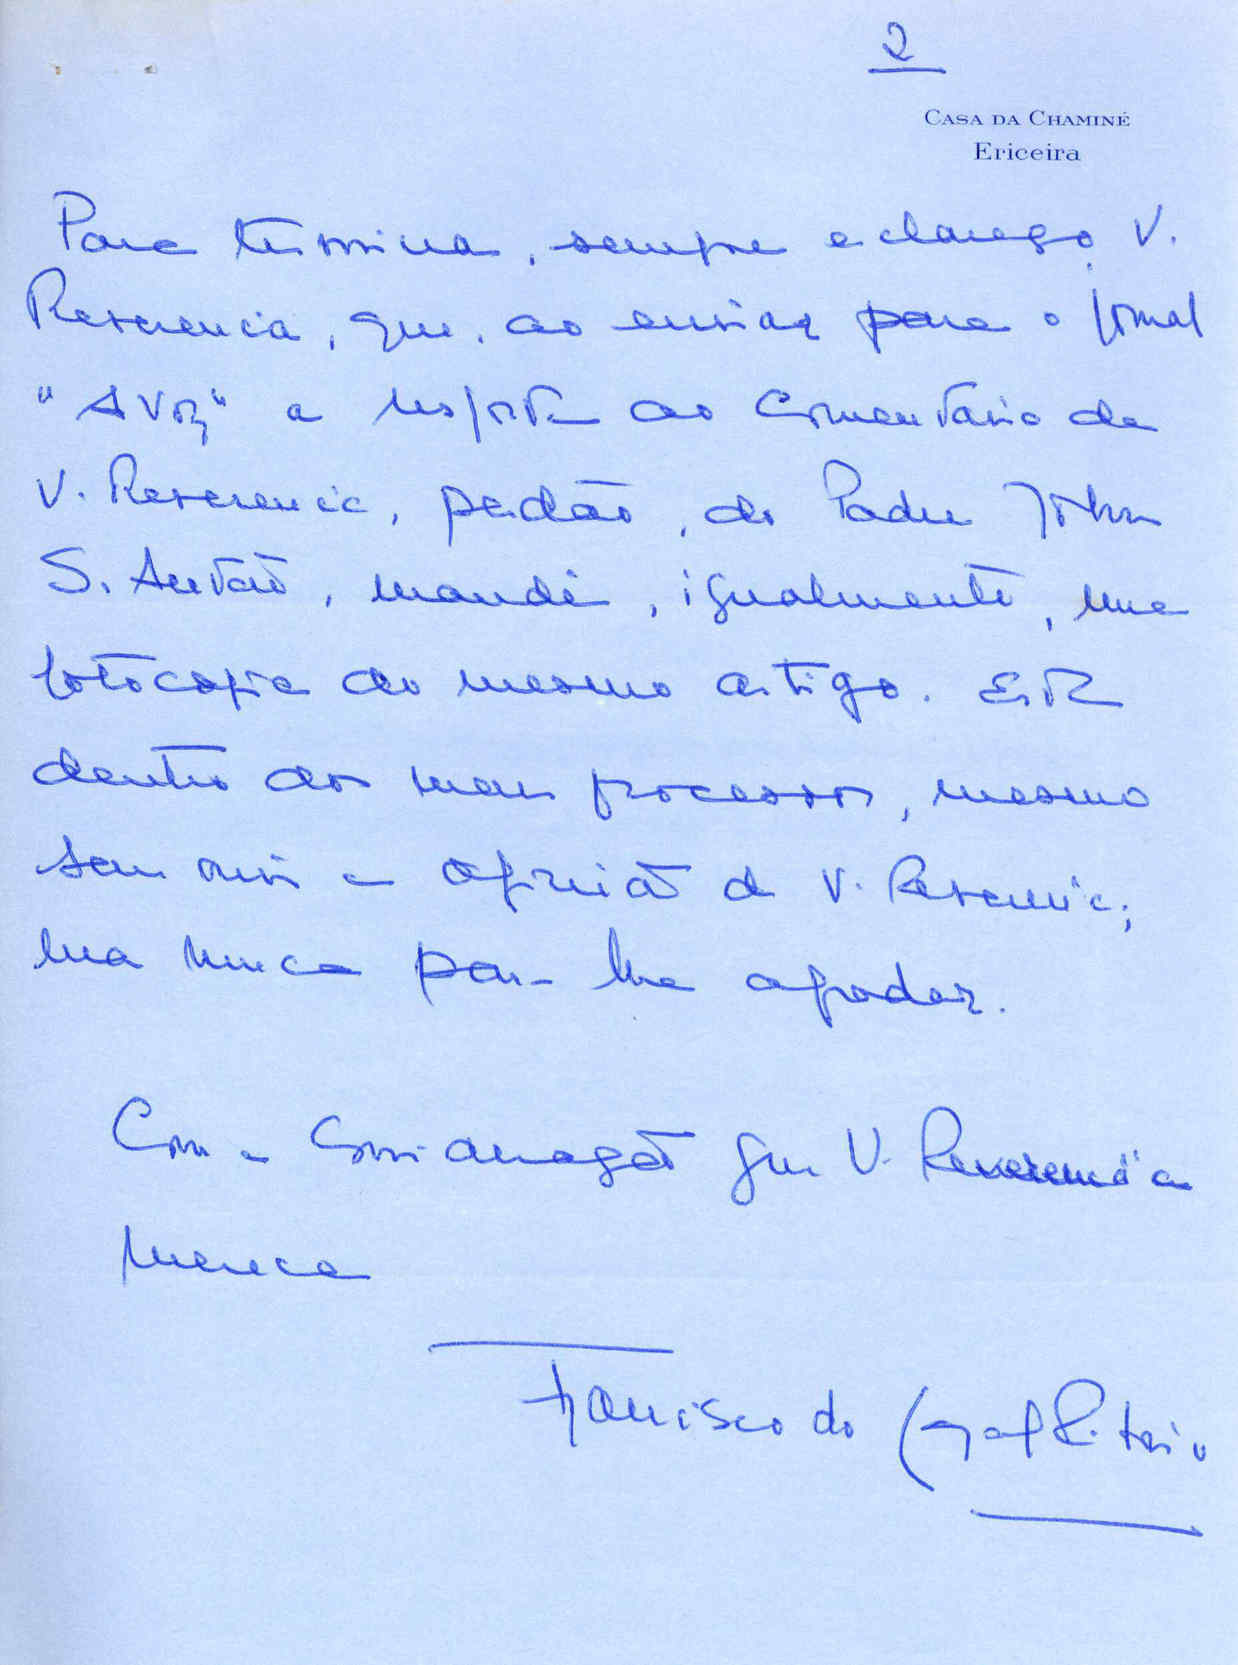 2
CASA DA CHAMINÉ
Ericeira
Para terminar, sempre esclareço, V.
Reverencia, que, ao enviar para o jornal
"A Voz" a resposta ao Comentário de
V. Reverencia, perdão, do Padre John
S. Antão, mandei, igualmente, uma
fotocopia do mesmo artigo. Está
dentro dos meus processos, mesmo
sem ouvir a opinião de V. Reverencia;
mas nunca para lhe agradar.
Com a consideração que V. Reverencia
mereça
Francisco do Ribeiro